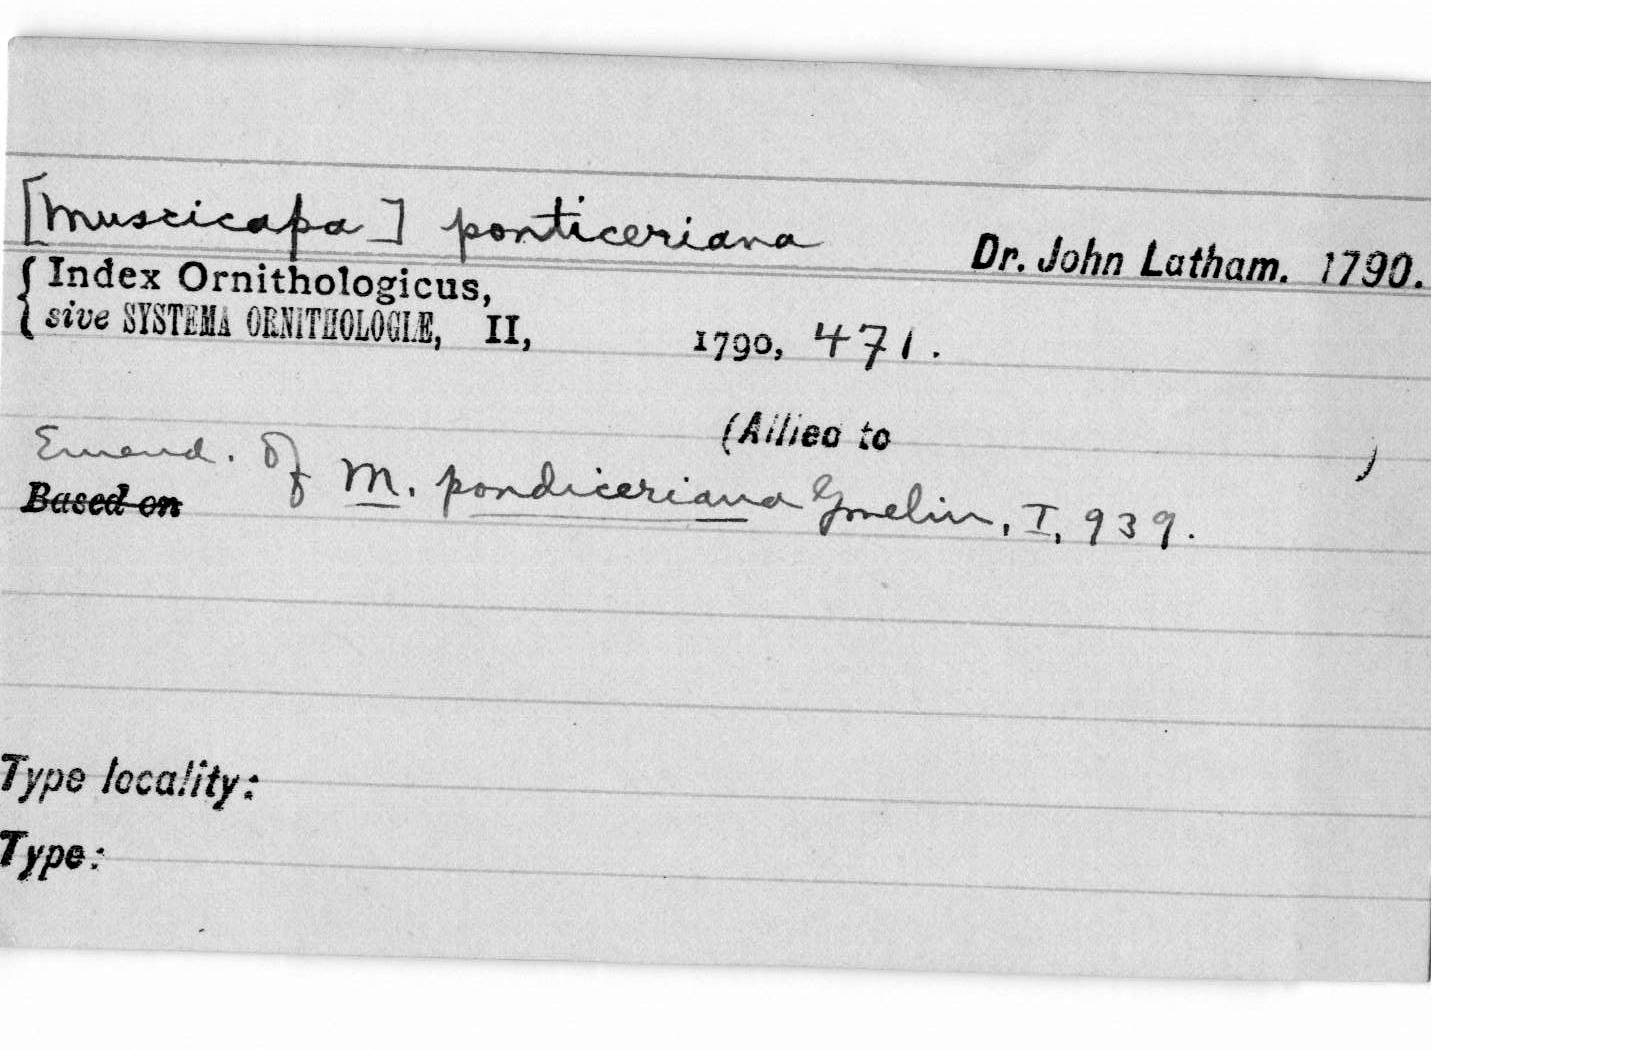 [Muscicapa] ponticeriana
Dr. John Latham. 1790.
Index Ornithologicus,
sive SYSTEMA ORNITHOLOGIÆ, II, 1790, 471.
(Allied to )
Emend. of M. pondiceriana Gmelin, I, 939.
Based on
Type locality:
Type: